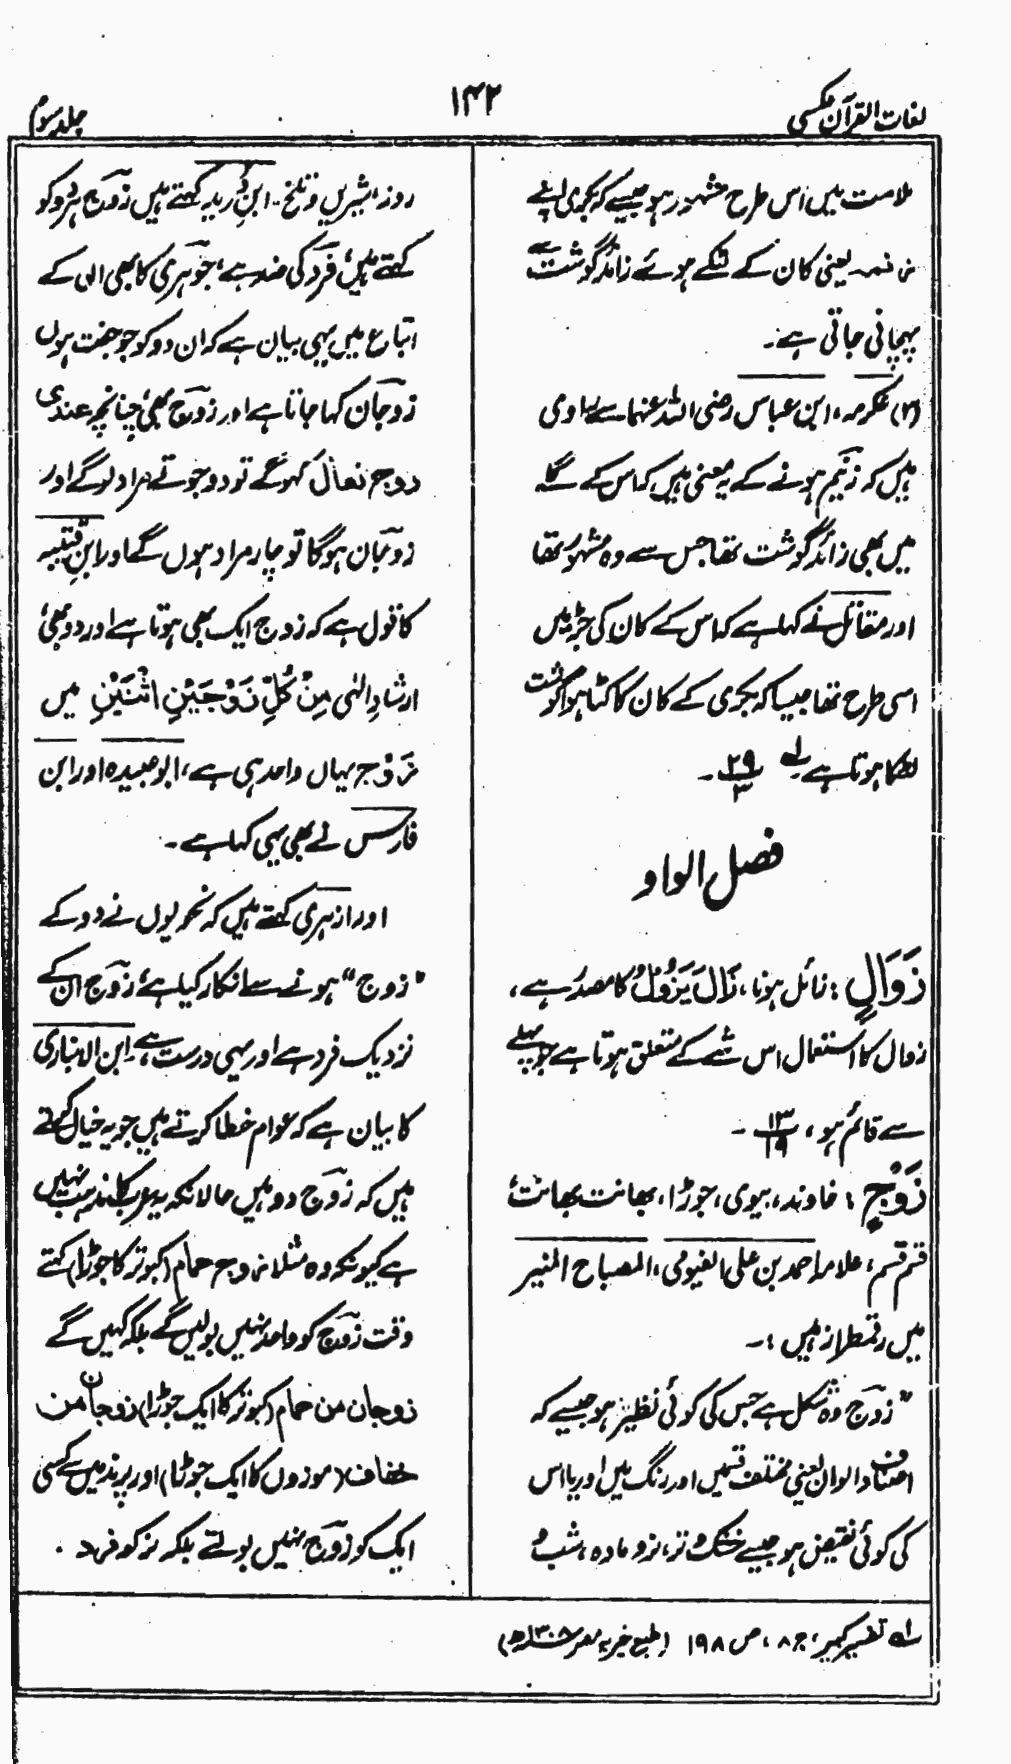 لغات القرآن عکسی
۱۴۲
جلد سوم
ملامت میں اس طرح مشہور ہو جیسے کہ بکری اپنے
زنمہ یعنی کان کے لٹکے ہوئے زائد گوشت سے
پہچانی جاتی ہے۔
(۲) عکرمہ، ابن عباس رضی اللہ عنہما سے راوی
ہیں کہ زنیم ہونے کے یہ معنی ہیں کہ اس کے گلے
میں بھی زائد گوشت تھا جس سے وہ مشہور تھا
اور مقاتل نے کہا ہے کہ اس کے کان کی جڑ میں
اسی طرح تھا جیسا کہ بکری کے کان کا کٹا ہوا گوشت
لٹکا ہوتا ہے لہ ۲۹/۳ ۔
فصل الواو
زَوَالٍ : زائل ہونا، زَالَ یَزُوْلُ کا مصدر ہے،
زوال کا استعمال اس شے کے متعلق ہوتا ہے جو پہلے
سے قائم ہو، ۱۳/۱۹ ۔
زَوْجٍ : خاوند، بیوی، جوڑا، بھانت بھانت،
قسم قسم، علامہ احمد بن علی الفیومی، المصباح المنیر
میں رقمطراز ہیں :۔
"زوج وہ شکل ہے جس کی کوئی نظیر ہو جیسے کہ
اصناف و الوان یعنی مختلف قسمیں اور رنگ ہیں اور یا اس
کی کوئی نقیض ہو جیسے خشک و تر، نر و مادہ، شب و
روز، شیریں و تلخ۔ ابن درید کہتے ہیں زوج ہر دو کو
کہتے ہیں، فرد کی ضد ہے، جوہری کا بھی اسی کے
اتباع میں یہی بیان ہے کہ ان دو کو جو جفت ہوں
زوجان کہا جاتا ہے اور زوج بھی، چنانچہ عندی
زوج نعال کہو گے تو دو جوتے مراد لوگے اور
زوجان ہوگا تو چار مراد ہوں گے اور ابن قتیبہ
کا قول ہے کہ زوج ایک بھی ہوتا ہے اور دو بھی،
ارشادِ الٰہی مِنْ كُلٍّ زَوْجَيْنِ اثْنَيْنِ میں
زَوْج یہاں واحد ہی ہے، ابو عبیدہ اور ابن
فارس نے بھی یہی کہا ہے۔
اور ازہری کہتے ہیں کہ نحویوں نے دو کے
"زوج" ہونے سے انکار کیا ہے، زوج ان کے
نزدیک فرد ہے اور یہی درست ہے، ابن الانباری
کا بیان ہے کہ عوام خطا کرتے ہیں جو یہ خیال کرتے
ہیں کہ زوج دو ہیں حالانکہ یہ عرب کا مذہب نہیں
ہے کیونکہ وہ مثلا زوج حمام (کبوتر کا جوڑا) کہتے
وقت زوج کو واحد نہیں بولیں گے بلکہ کہیں گے
زوجان من حمام (کبوتر کا ایک جوڑا) زوجان من
خفاف (موزوں کا ایک جوڑا) اور پرند میں سے کسی
ایک کو زوج نہیں بولتے بلکہ نر کو فرد
لہ تفسیر کبیر، ج ۸، ص ۱۹۸ (طبع خیریہ مصر ۱۳۰۸ھ)